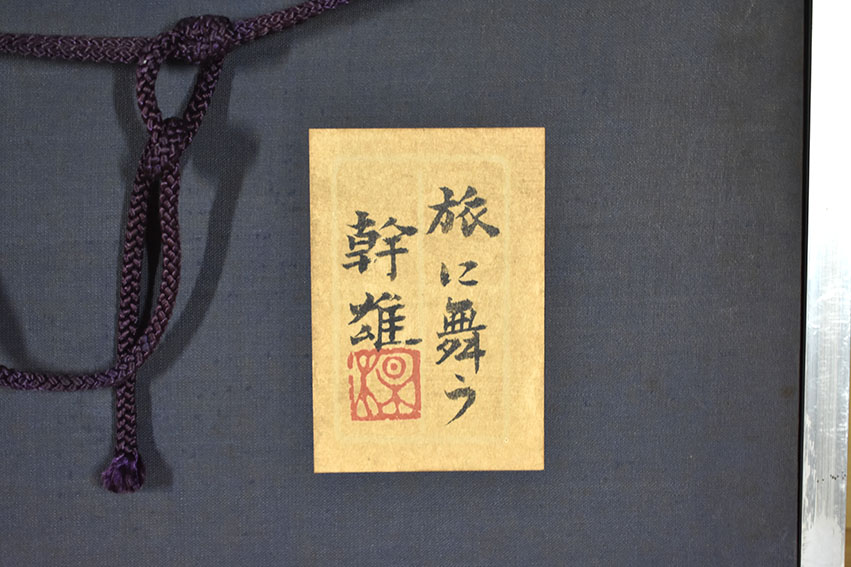 旅に舞う
幹雄